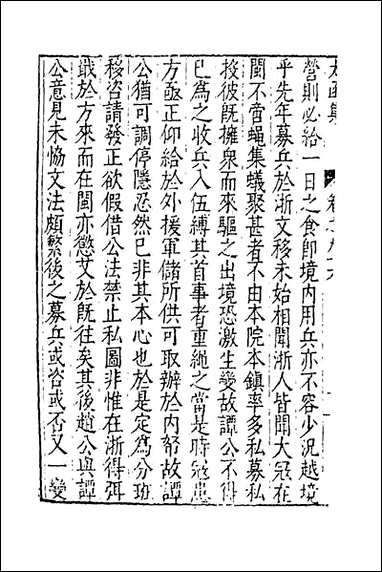 太函集
卷之九十六
營則必給一日之食即境内用兵亦不容少况越境
乎先年募兵於浙文移未始相聞浙人皆聞大冦在
閩不啻蝇集蟻聚甚者不由本院本鎮率多私募私
投彼旣擁衆而來驅之出境恐激生變故譚公不得
已為之收兵入伍縛其首事者重繩之當是時冦患
方亟正仰給於外援軍儲所供可取辦於内帑故譚
公猶可調停隱忍然已非其本心也於是定為分班
移咨請發正欲假借公法禁止私圖非惟在浙得弭
戢於方來而在閩亦懲艾於旣往矣其後趙公與譚
公意見未恊文法頗繁後之募兵或咨或否又一變